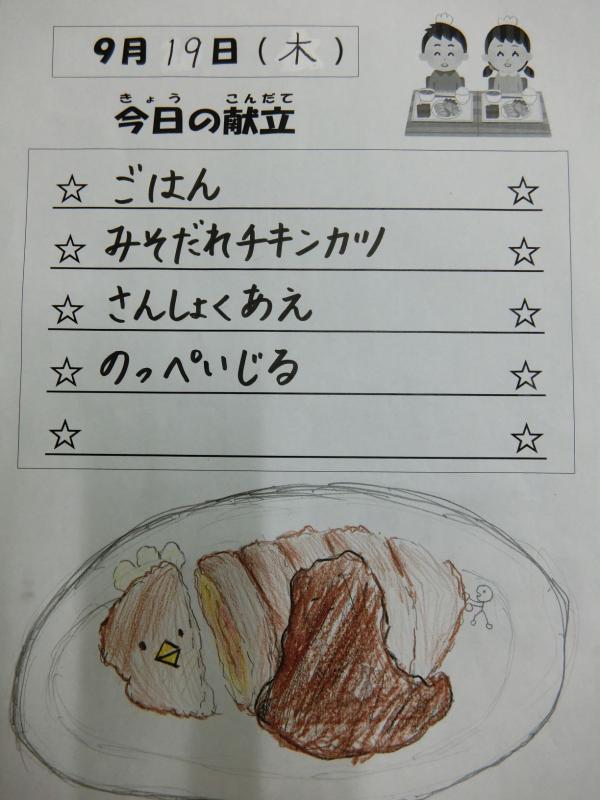 9月19日(木)
きょう こんだて
今日の献立
☆ ごはん ☆
☆ みそだれチキンカツ ☆
☆ さんしょくあえ ☆
☆ のっぺいじる ☆
☆ ☆